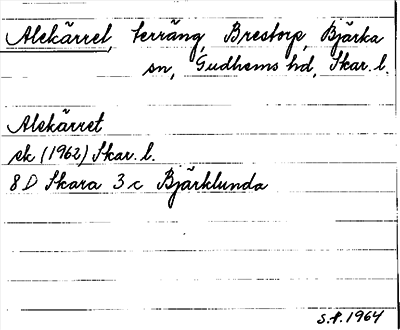 Alekärret, terräng, Brestorp, Bjärka
sn, Gudhems hd, Skar. l.
Alekärret
ek (1962) Skar. l.
8 D Skara 3 c Bjärklunda
S.P. 1964